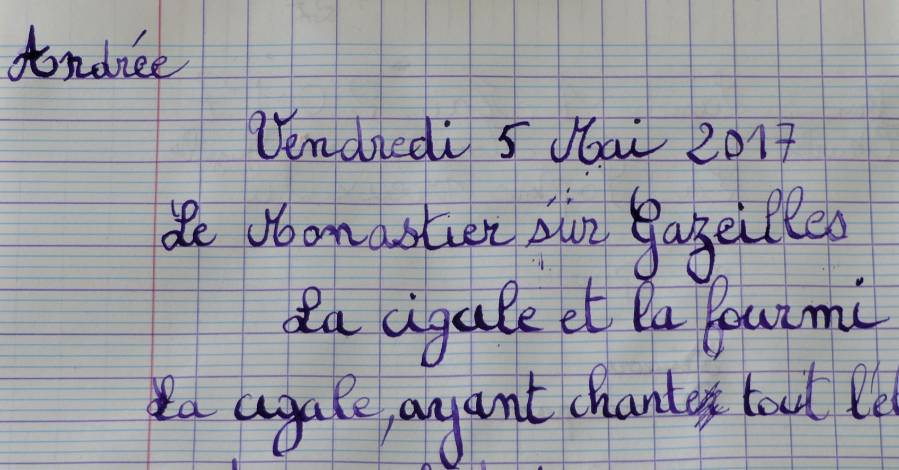 Andrée
Vendredi 5 Mai 2017
Le Monastier sur Gazeilles
La cigale et la fourmi
La cigale, ayant chanté tout l'ét